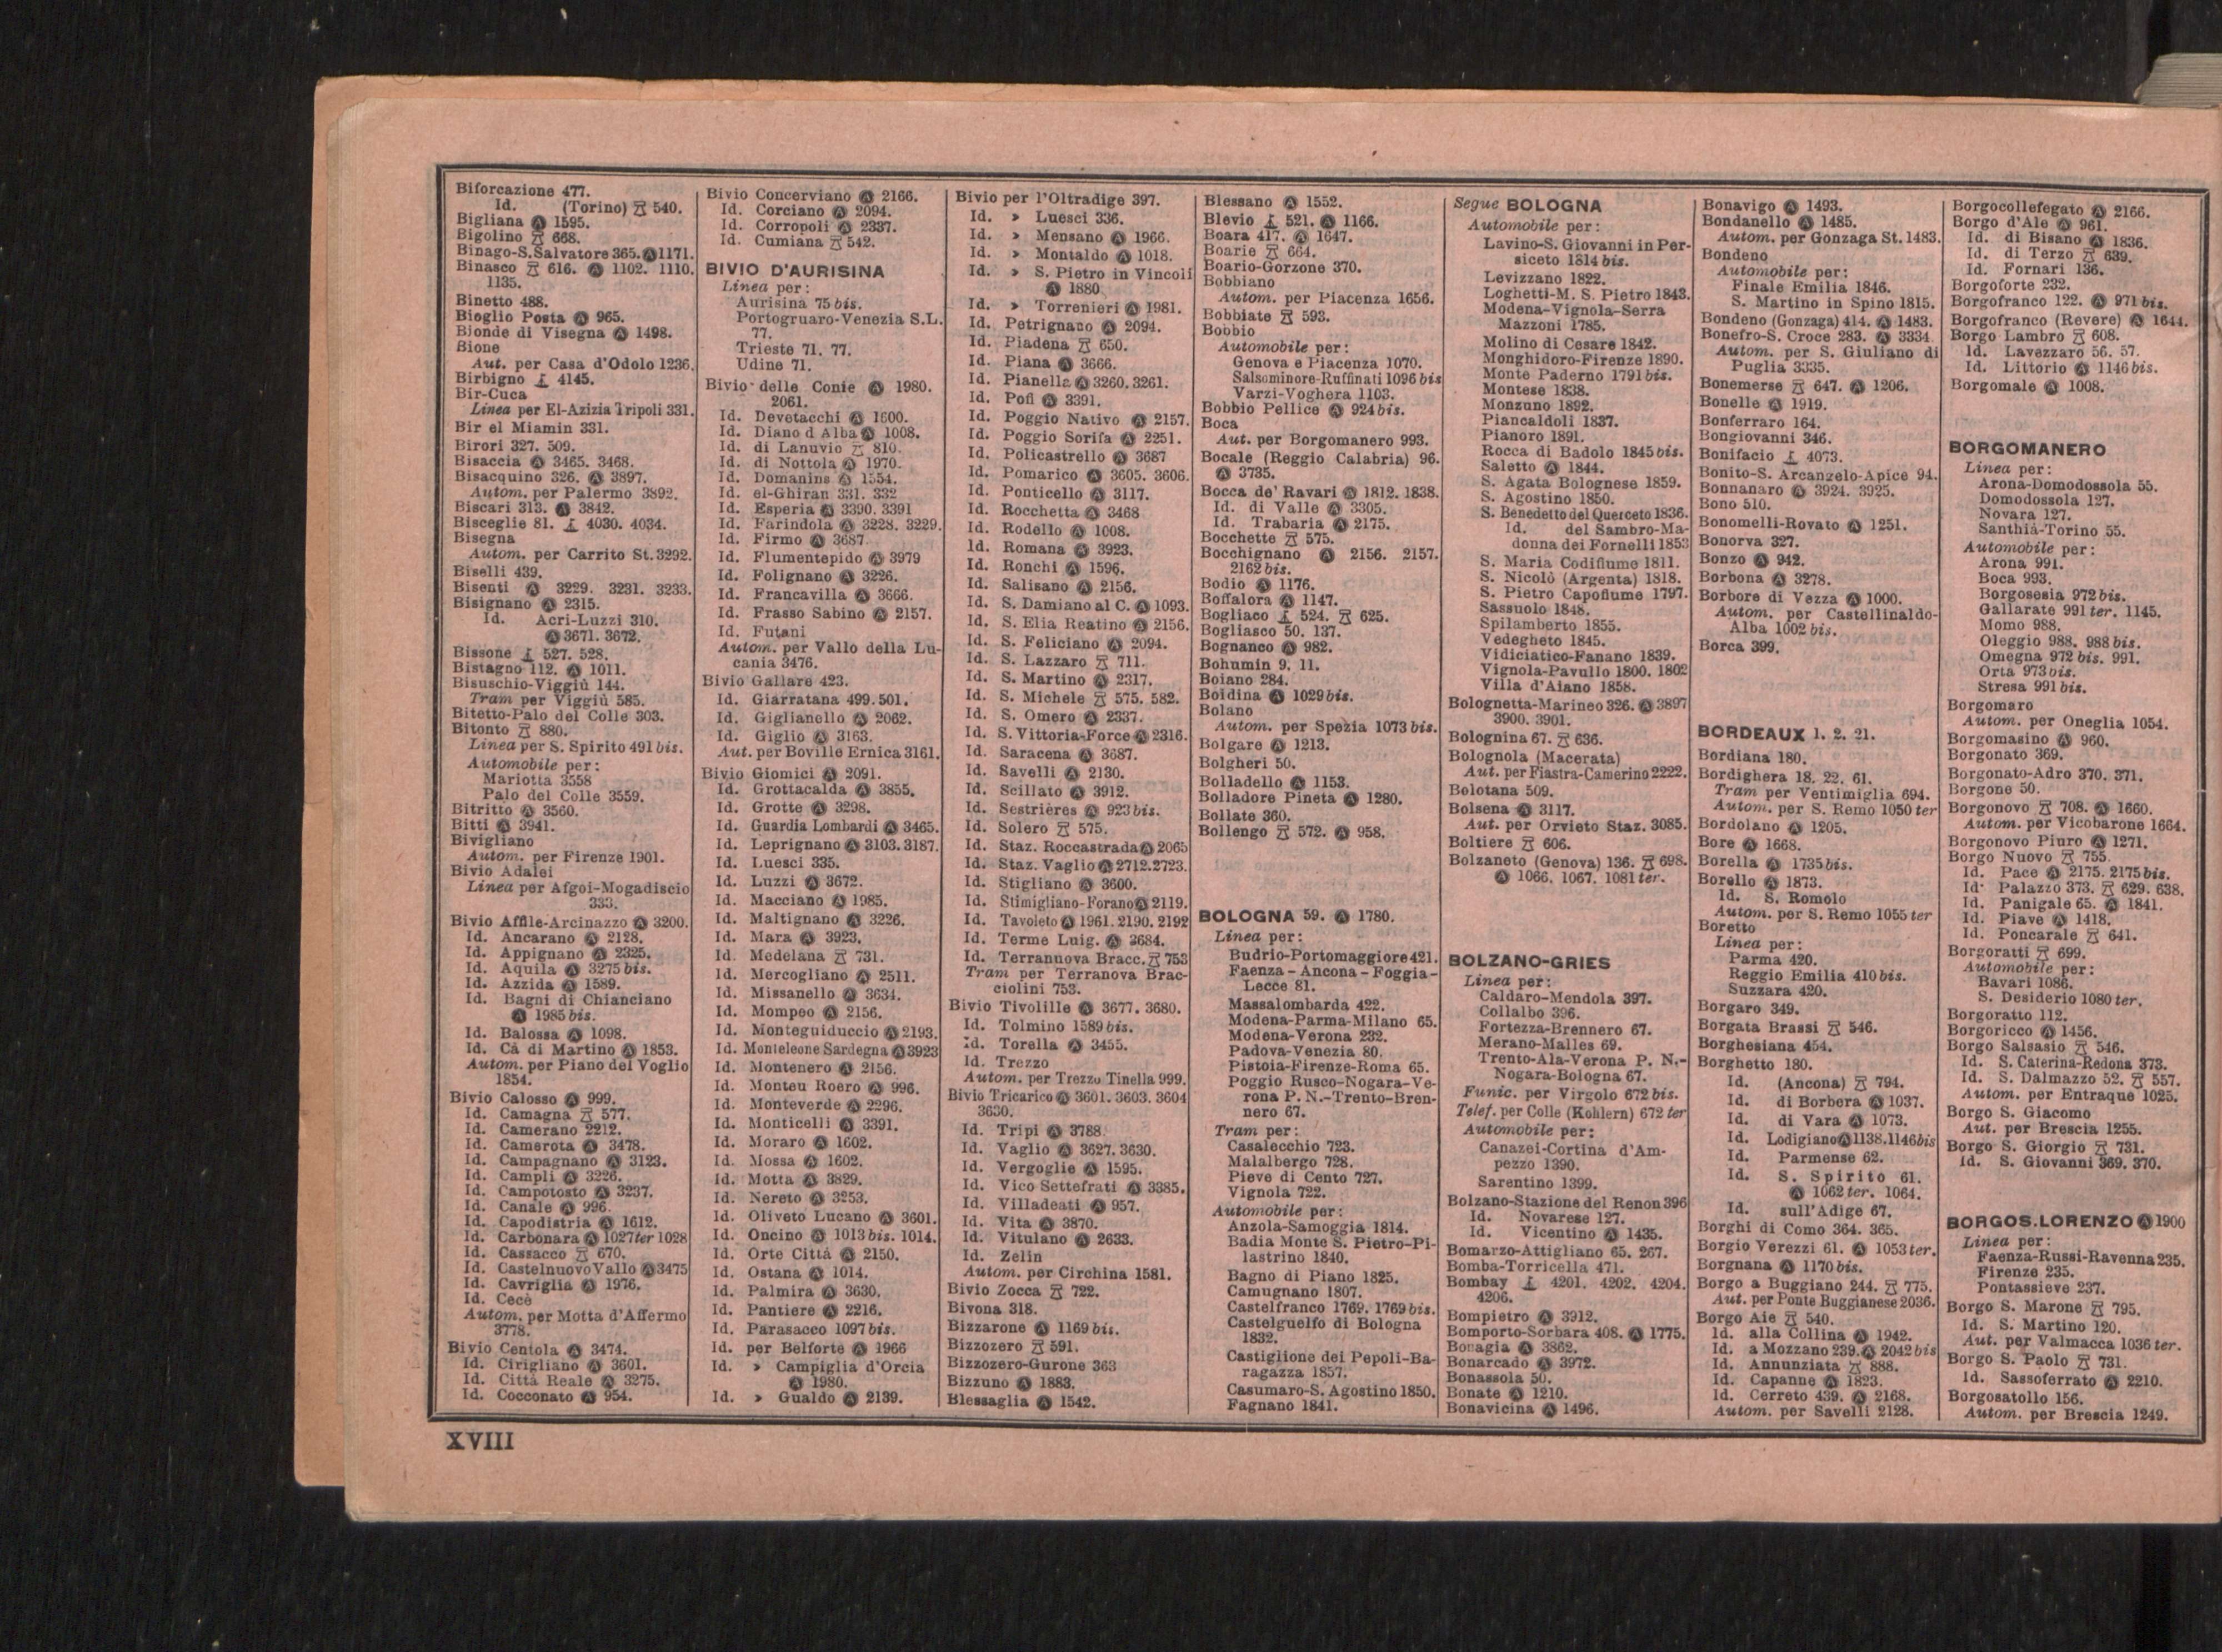 Biforcazione 477.
Id. (Torino) 540.
Bigliana Ⓐ 1595.
Bigolino 668.
Binago-S. Salvatore 365. Ⓐ 1171.
Binasco 616. Ⓐ 1102. 1110.
1135.
Binetto 488.
Bioglio Posta Ⓐ 965.
Bionde di Visegna Ⓐ 1498.
Bione
Aut. per Casa d'Odolo 1236.
Birbigno 4145.
Bir-Cuca
Linea per El-Azizia Tripoli 331.
Bir el Miamin 331.
Birori 327. 509.
Bisaccia Ⓐ 3465. 3468.
Bisacquino 326. Ⓐ 3897.
Autom. per Palermo 3892.
Biscari 313. Ⓐ 3842.
Bisceglie 81. 4030. 4034.
Bisegna
Autom. per Carrito St. 3292.
Biselli 439.
Bisenti Ⓐ 3229. 3231. 3233.
Bisignano Ⓐ 2315.
Id. Acri-Luzzi 310.
Ⓐ 3671. 3672.
Bissone 527. 528.
Bistagno 112. Ⓐ 1011.
Bisuschio-Viggiù 144.
Tram per Viggiù 585.
Bitetto-Palo del Colle 303.
Bitonto 880.
Linea per S. Spirito 491 bis.
Automobile per:
Mariotta 3558
Palo del Colle 3559.
Bitritto Ⓐ 3560.
Bitti Ⓐ 3941.
Bivigliano
Autom. per Firenze 1901.
Bivio Adalei
Linea per Afgoi-Mogadiscio
333.
Bivio Affile-Arcinazzo Ⓐ 3200.
Id. Ancarano Ⓐ 2128.
Id. Appignano Ⓐ 2325.
Id. Aquila Ⓐ 3275 bis.
Id. Azzida Ⓐ 1589.
Id. Bagni di Chianciano
Ⓐ 1985 bis.
Id. Balossa Ⓐ 1098.
Id. Cà di Martino Ⓐ 1853.
Autom. per Piano del Voglio
1854.
Bivio Calosso Ⓐ 999.
Id. Camagna 577.
Id. Camerano 2212.
Id. Camerota Ⓐ 3478.
Id. Campagnano Ⓐ 3123.
Id. Campli Ⓐ 3226.
Id. Campotosto Ⓐ 3237.
Id. Canale Ⓐ 996.
Id. Capodistria Ⓐ 1612.
Id. Carbonara Ⓐ 1027 ter 1028
Id. Cassacco 670.
Id. Castelnuovo Vallo Ⓐ 3475
Id. Cavriglia Ⓐ 1976.
Id. Cecè
Autom. per Motta d'Affermo
3778.
Bivio Centola Ⓐ 3474.
Id. Cirigliano Ⓐ 3601.
Id. Città Reale Ⓐ 3275.
Id. Cocconato Ⓐ 954.
Bivio Concerviano Ⓐ 2166.
Id. Corciano Ⓐ 2094.
Id. Corropoli Ⓐ 2337.
Id. Cumiana 542.
BIVIO D'AURISINA
Linea per:
Aurisina 75 bis.
Portogruaro-Venezia S.L.
77.
Trieste 71. 77.
Udine 71.
Bivio delle Conie Ⓐ 1980.
2061.
Id. Devetacchi Ⓐ 1600.
Id. Diano d Alba Ⓐ 1008.
Id. di Lanuvio 810.
Id. di Nottola Ⓐ 1970.
Id. Domanins Ⓐ 1554.
Id. el-Ghiran 331. 332
Id. Esperia Ⓐ 3390. 3391
Id. Farindola Ⓐ 3228. 3229.
Id. Firmo Ⓐ 3687.
Id. Flumentepido Ⓐ 3979
Id. Folignano Ⓐ 3226.
Id. Francavilla Ⓐ 3666.
Id. Frasso Sabino Ⓐ 2157.
Id. Futani
Autom. per Vallo della Lu-
cania 3476.
Bivio Gallare 423.
Id. Giarratana 499. 501.
Id. Giglianello Ⓐ 2062.
Id. Giglio Ⓐ 3163.
Aut. per Boville Ernica 3161.
Bivio Giomici Ⓐ 2091.
Id. Grottacalda Ⓐ 3855.
Id. Grotte Ⓐ 3298.
Id. Guardia Lombardi Ⓐ 3465.
Id. Leprignano Ⓐ 3103. 3187.
Id. Luesci 335.
Id. Luzzi Ⓐ 3672.
Id. Macciano Ⓐ 1985.
Id. Maltignano Ⓐ 3226.
Id. Mara Ⓐ 3923.
Id. Medelana 731.
Id. Mercogliano Ⓐ 2511.
Id. Missanello Ⓐ 3634.
Id. Mompeo Ⓐ 2156.
Id. Monteguiduccio Ⓐ 2193.
Id. Monteleone Sardegna Ⓐ 3923
Id. Montenero Ⓐ 2156.
Id. Monteu Roero Ⓐ 996.
Id. Monteverde Ⓐ 2296.
Id. Monticelli Ⓐ 3391.
Id. Moraro Ⓐ 1602.
Id. Mossa Ⓐ 1602.
Id. Motta Ⓐ 3829.
Id. Nereto Ⓐ 3253.
Id. Oliveto Lucano Ⓐ 3601.
Id. Oncino Ⓐ 1013 bis. 1014.
Id. Orte Città Ⓐ 2150.
Id. Ostana Ⓐ 1014.
Id. Palmira Ⓐ 3630.
Id. Pantiere Ⓐ 2216.
Id. Parasacco 1097 bis.
Id. per Belforte Ⓐ 1966
Id. » Campiglia d'Orcia
Ⓐ 1980.
Id. » Gualdo Ⓐ 2139.
Bivio per l'Oltradige 397.
Id. » Luesci 336.
Id. » Mensano Ⓐ 1966.
Id. » Montaldo Ⓐ 1018.
Id. » S. Pietro in Vincoli
Ⓐ 1880
Id. » Torrenieri Ⓐ 1981.
Id. Petrignano Ⓐ 2094.
Id. Piadena 650.
Id. Piana Ⓐ 3666.
Id. Pianella Ⓐ 3260. 3261.
Id. Pofi Ⓐ 3391.
Id. Poggio Nativo Ⓐ 2157.
Id. Poggio Sorifa Ⓐ 2251.
Id. Policastrello Ⓐ 3687
Id. Pomarico Ⓐ 3605. 3606.
Id. Ponticello Ⓐ 3117.
Id. Rocchetta Ⓐ 3468
Id. Rodello Ⓐ 1008.
Id. Romana Ⓐ 3923.
Id. Ronchi Ⓐ 1596.
Id. Salisano Ⓐ 2156.
Id. S. Damiano al C. Ⓐ 1093.
Id. S. Elia Reatino Ⓐ 2156.
Id. S. Feliciano Ⓐ 2094.
Id. S. Lazzaro 711.
Id. S. Martino Ⓐ 2317.
Id. S. Michele 575. 582.
Id. S. Omero Ⓐ 2337.
Id. S. Vittoria-Force Ⓐ 2316.
Id. Saracena Ⓐ 3687.
Id. Savelli Ⓐ 2130.
Id. Scillato Ⓐ 3912.
Id. Sestrières Ⓐ 923 bis.
Id. Solero 575.
Id. Staz. Roccastrada Ⓐ 2065
Id. Staz. Vaglio Ⓐ 2712. 2723.
Id. Stigliano Ⓐ 3600.
Id. Stimigliano-Forano Ⓐ 2119.
Id. Tavoleto Ⓐ 1961. 2190. 2192
Id. Terme Luig. Ⓐ 3684.
Id. Terranuova Bracc. 753
Tram per Terranova Brac-
ciolini 753.
Bivio Tivolille Ⓐ 3677. 3680.
Id. Tolmino 1589 bis.
Id. Torella Ⓐ 3455.
Id. Trezzo
Autom. per Trezzo Tinella 999.
Bivio Tricarico Ⓐ 3601. 3603. 3604
3630.
Id. Tripi Ⓐ 3788.
Id. Vaglio Ⓐ 3627. 3630.
Id. Vergoglie Ⓐ 1595.
Id. Vico Settefrati Ⓐ 3385.
Id. Villadeati Ⓐ 957.
Id. Vita Ⓐ 3870.
Id. Vitulano Ⓐ 2633.
Id. Zelin
Autom. per Circhina 1581.
Bivio Zocca 722.
Bivona 318.
Bizzarone Ⓐ 1169 bis.
Bizzozero 591.
Bizzozero-Gurone 363
Bizzuno Ⓐ 1883.
Blessaglia Ⓐ 1542.
Blessano Ⓐ 1552.
Blevio 521. Ⓐ 1166.
Boara 417. Ⓐ 1647.
Boarie 664.
Boario-Gorzone 370.
Bobbiano
Autom. per Piacenza 1656.
Bobbiate 593.
Bobbio
Automobile per:
Genova e Piacenza 1070.
Salsominore-Ruffinati 1096 bis
Varzi-Voghera 1103.
Bobbio Pellice Ⓐ 924 bis.
Boca
Aut. per Borgomanero 993.
Bocale (Reggio Calabria) 96.
Ⓐ 3735.
Bocca de' Ravari Ⓐ 1812. 1838.
Id. di Valle Ⓐ 3305.
Id. Trabaria Ⓐ 2175.
Bocchette 575.
Bocchignano Ⓐ 2156. 2157.
2162 bis.
Bodio Ⓐ 1176.
Boffalora Ⓐ 1147.
Bogliaco 524. 625.
Bogliasco 50. 137.
Bognanco Ⓐ 982.
Bohumin 9. 11.
Boiano 284.
Boidina Ⓐ 1029 bis.
Bolano
Autom. per Spezia 1073 bis.
Bolgare Ⓐ 1213.
Bolgheri 50.
Bolladello Ⓐ 1153.
Bolladore Pineta Ⓐ 1280.
Bollate 360.
Bollengo 572. Ⓐ 958.
BOLOGNA 59. Ⓐ 1780.
Linea per:
Budrio-Portomaggiore 421.
Faenza - Ancona - Foggia-
Lecce 81.
Massalombarda 422.
Modena-Parma-Milano 65.
Modena-Verona 232.
Padova-Venezia 80.
Pistoia-Firenze-Roma 65.
Poggio Rusco-Nogara-Ve-
rona P. N.-Trento-Bren-
nero 67.
Tram per:
Casalecchio 723.
Malalbergo 728.
Pieve di Cento 727.
Vignola 722.
Automobile per:
Anzola-Samoggia 1814.
Badia Monte S. Pietro-Pi-
lastrino 1840.
Bagno di Piano 1825.
Camugnano 1807.
Castelfranco 1769. 1769 bis.
Castelguelfo di Bologna
1832.
Castiglione dei Pepoli-Ba-
ragazza 1857.
Casumaro-S. Agostino 1850.
Fagnano 1841.
Segue BOLOGNA
Automobile per:
Lavino-S. Giovanni in Per-
siceto 1814 bis.
Levizzano 1822.
Loghetti-M. S. Pietro 1843.
Modena-Vignola-Serra
Mazzoni 1785.
Molino di Cesare 1842.
Monghidoro-Firenze 1890.
Monte Paderno 1791 bis.
Montese 1838.
Monzuno 1892.
Piancaldoli 1837.
Pianoro 1891.
Rocca di Badolo 1845 bis.
Saletto Ⓐ 1844.
S. Agata Bolognese 1859.
S. Agostino 1850.
S. Benedetto del Querceto 1836.
Id. del Sambro-Ma-
donna dei Fornelli 1853
S. Maria Codifiume 1811.
S. Nicolò (Argenta) 1818.
S. Pietro Capofiume 1797.
Sassuolo 1848.
Spilamberto 1855.
Vedegheto 1845.
Vidiciatico-Fanano 1839.
Vignola-Pavullo 1800. 1802
Villa d'Aiano 1858.
Bolognetta-Marineo 326. Ⓐ 3897
3900. 3901.
Bolognina 67. 636.
Bolognola (Macerata)
Aut. per Fiastra-Camerino 2222.
Bolotana 509.
Bolsena Ⓐ 3117.
Aut. per Orvieto Staz. 3085.
Boltiere 606.
Bolzaneto (Genova) 136. 698.
Ⓐ 1066. 1067. 1081 ter.
BOLZANO-GRIES
Linea per:
Caldaro-Mendola 397.
Collalbo 396.
Fortezza-Brennero 67.
Merano-Malles 69.
Trento-Ala-Verona P. N.-
Nogara-Bologna 67.
Funic. per Virgolo 672 bis.
Telef. per Colle (Kohlern) 672 ter
Automobile per:
Canazei-Cortina d'Am-
pezzo 1390.
Sarentino 1399.
Bolzano-Stazione del Renon 396
Id. Novarese 127.
Id. Vicentino Ⓐ 1435.
Bomarzo-Attigliano 65. 267.
Bomba-Torricella 471.
Bombay 4201. 4202. 4204.
4206.
Bompietro Ⓐ 3912.
Bomporto-Sorbara 408. Ⓐ 1775.
Bonagia Ⓐ 3862.
Bonarcado Ⓐ 3972.
Bonassola 50.
Bonate Ⓐ 1210.
Bonavicina Ⓐ 1496.
Bonavigo Ⓐ 1493.
Bondanello Ⓐ 1485.
Autom. per Gonzaga St. 1483.
Bondeno
Automobile per:
Finale Emilia 1846.
S. Martino in Spino 1815.
Bondeno (Gonzaga) 414. Ⓐ 1483.
Bonefro-S. Croce 283. Ⓐ 3334.
Autom. per S. Giuliano di
Puglia 3335.
Bonemerse 647. Ⓐ 1206.
Bonelle Ⓐ 1919.
Bonferraro 164.
Bongiovanni 346.
Bonifacio 4073.
Bonito-S. Arcangelo-Apice 94.
Bonnanaro Ⓐ 3924. 3925.
Bono 510.
Bonomelli-Rovato Ⓐ 1251.
Bonorva 327.
Bonzo Ⓐ 942.
Borbona Ⓐ 3278.
Borbore di Vezza Ⓐ 1000.
Autom. per Castellinaldo-
Alba 1002 bis.
Borca 399.
BORDEAUX 1. 2. 21.
Bordiana 180.
Bordighera 18. 22. 61.
Tram per Ventimiglia 694.
Autom. per S. Remo 1050 ter
Bordolano Ⓐ 1205.
Bore Ⓐ 1668.
Borella Ⓐ 1735 bis.
Borello Ⓐ 1873.
Id. S. Romolo
Autom. per S. Remo 1055 ter
Boretto
Linea per:
Parma 420.
Reggio Emilia 410 bis.
Suzzara 420.
Borgaro 349.
Borgata Brassi 546.
Borghesiana 454.
Borghetto 180.
Id. (Ancona) 794.
Id. di Borbera Ⓐ 1037.
Id. di Vara Ⓐ 1073.
Id. Lodigiano Ⓐ 1138. 1146 bis
Id. Parmense 62.
Id. S. Spirito 61.
Ⓐ 1062 ter. 1064.
Id. sull'Adige 67.
Borghi di Como 364. 365.
Borgio Verezzi 61. Ⓐ 1053 ter.
Borgnana Ⓐ 1170 bis.
Borgo a Buggiano 244. 775.
Aut. per Ponte Buggianese 2036.
Borgo Aie 540.
Id. alla Collina Ⓐ 1942.
Id. a Mozzano 239. Ⓐ 2042 bis
Id. Annunziata 888.
Id. Capanne Ⓐ 1823.
Id. Cerreto 439. Ⓐ 2168.
Autom. per Savelli 2128.
Borgocollefegato Ⓐ 2166.
Borgo d'Ale Ⓐ 961.
Id. di Bisano Ⓐ 1836.
Id. di Terzo 639.
Id. Fornari 136.
Borgoforte 232.
Borgofranco 122. Ⓐ 971 bis.
Borgofranco (Revere) Ⓐ 1644.
Borgo Lambro 608.
Id. Lavezzaro 56. 57.
Id. Littorio Ⓐ 1146 bis.
Borgomale Ⓐ 1008.
BORGOMANERO
Linea per:
Arona-Domodossola 55.
Domodossola 127.
Novara 127.
Santhià-Torino 55.
Automobile per:
Arona 991.
Boca 993.
Borgosesia 972 bis.
Gallarate 991 ter. 1145.
Momo 988.
Oleggio 988. 988 bis.
Omegna 972 bis. 991.
Orta 973 bis.
Stresa 991 bis.
Borgomaro
Autom. per Oneglia 1054.
Borgomasino Ⓐ 960.
Borgonato 369.
Borgonato-Adro 370. 371.
Borgone 50.
Borgonovo 708. Ⓐ 1660.
Autom. per Vicobarone 1664.
Borgonovo Piuro Ⓐ 1271.
Borgo Nuovo 755.
Id. Pace Ⓐ 2175. 2175 bis.
Id. Palazzo 373. 629. 638.
Id. Panigale 65. Ⓐ 1841.
Id. Piave Ⓐ 1418.
Id. Poncarale 641.
Borgoratti 699.
Automobile per:
Bavari 1086.
S. Desiderio 1080 ter.
Borgoratto 112.
Borgoricco Ⓐ 1456.
Borgo Salsasio 546.
Id. S. Caterina-Redona 373.
Id. S. Dalmazzo 52. 557.
Autom. per Entraque 1025.
Borgo S. Giacomo
Aut. per Brescia 1255.
Borgo S. Giorgio 731.
Id. S. Giovanni 369. 370.
BORGO S. LORENZO Ⓐ 1900
Linea per:
Faenza-Russi-Ravenna 235.
Firenze 235.
Pontassieve 237.
Borgo S. Marone 795.
Id. S. Martino 120.
Aut. per Valmacca 1036 ter.
Borgo S. Paolo 731.
Id. Sassoferrato Ⓐ 2210.
Borgosatollo 156.
Autom. per Brescia 1249.
XVIII